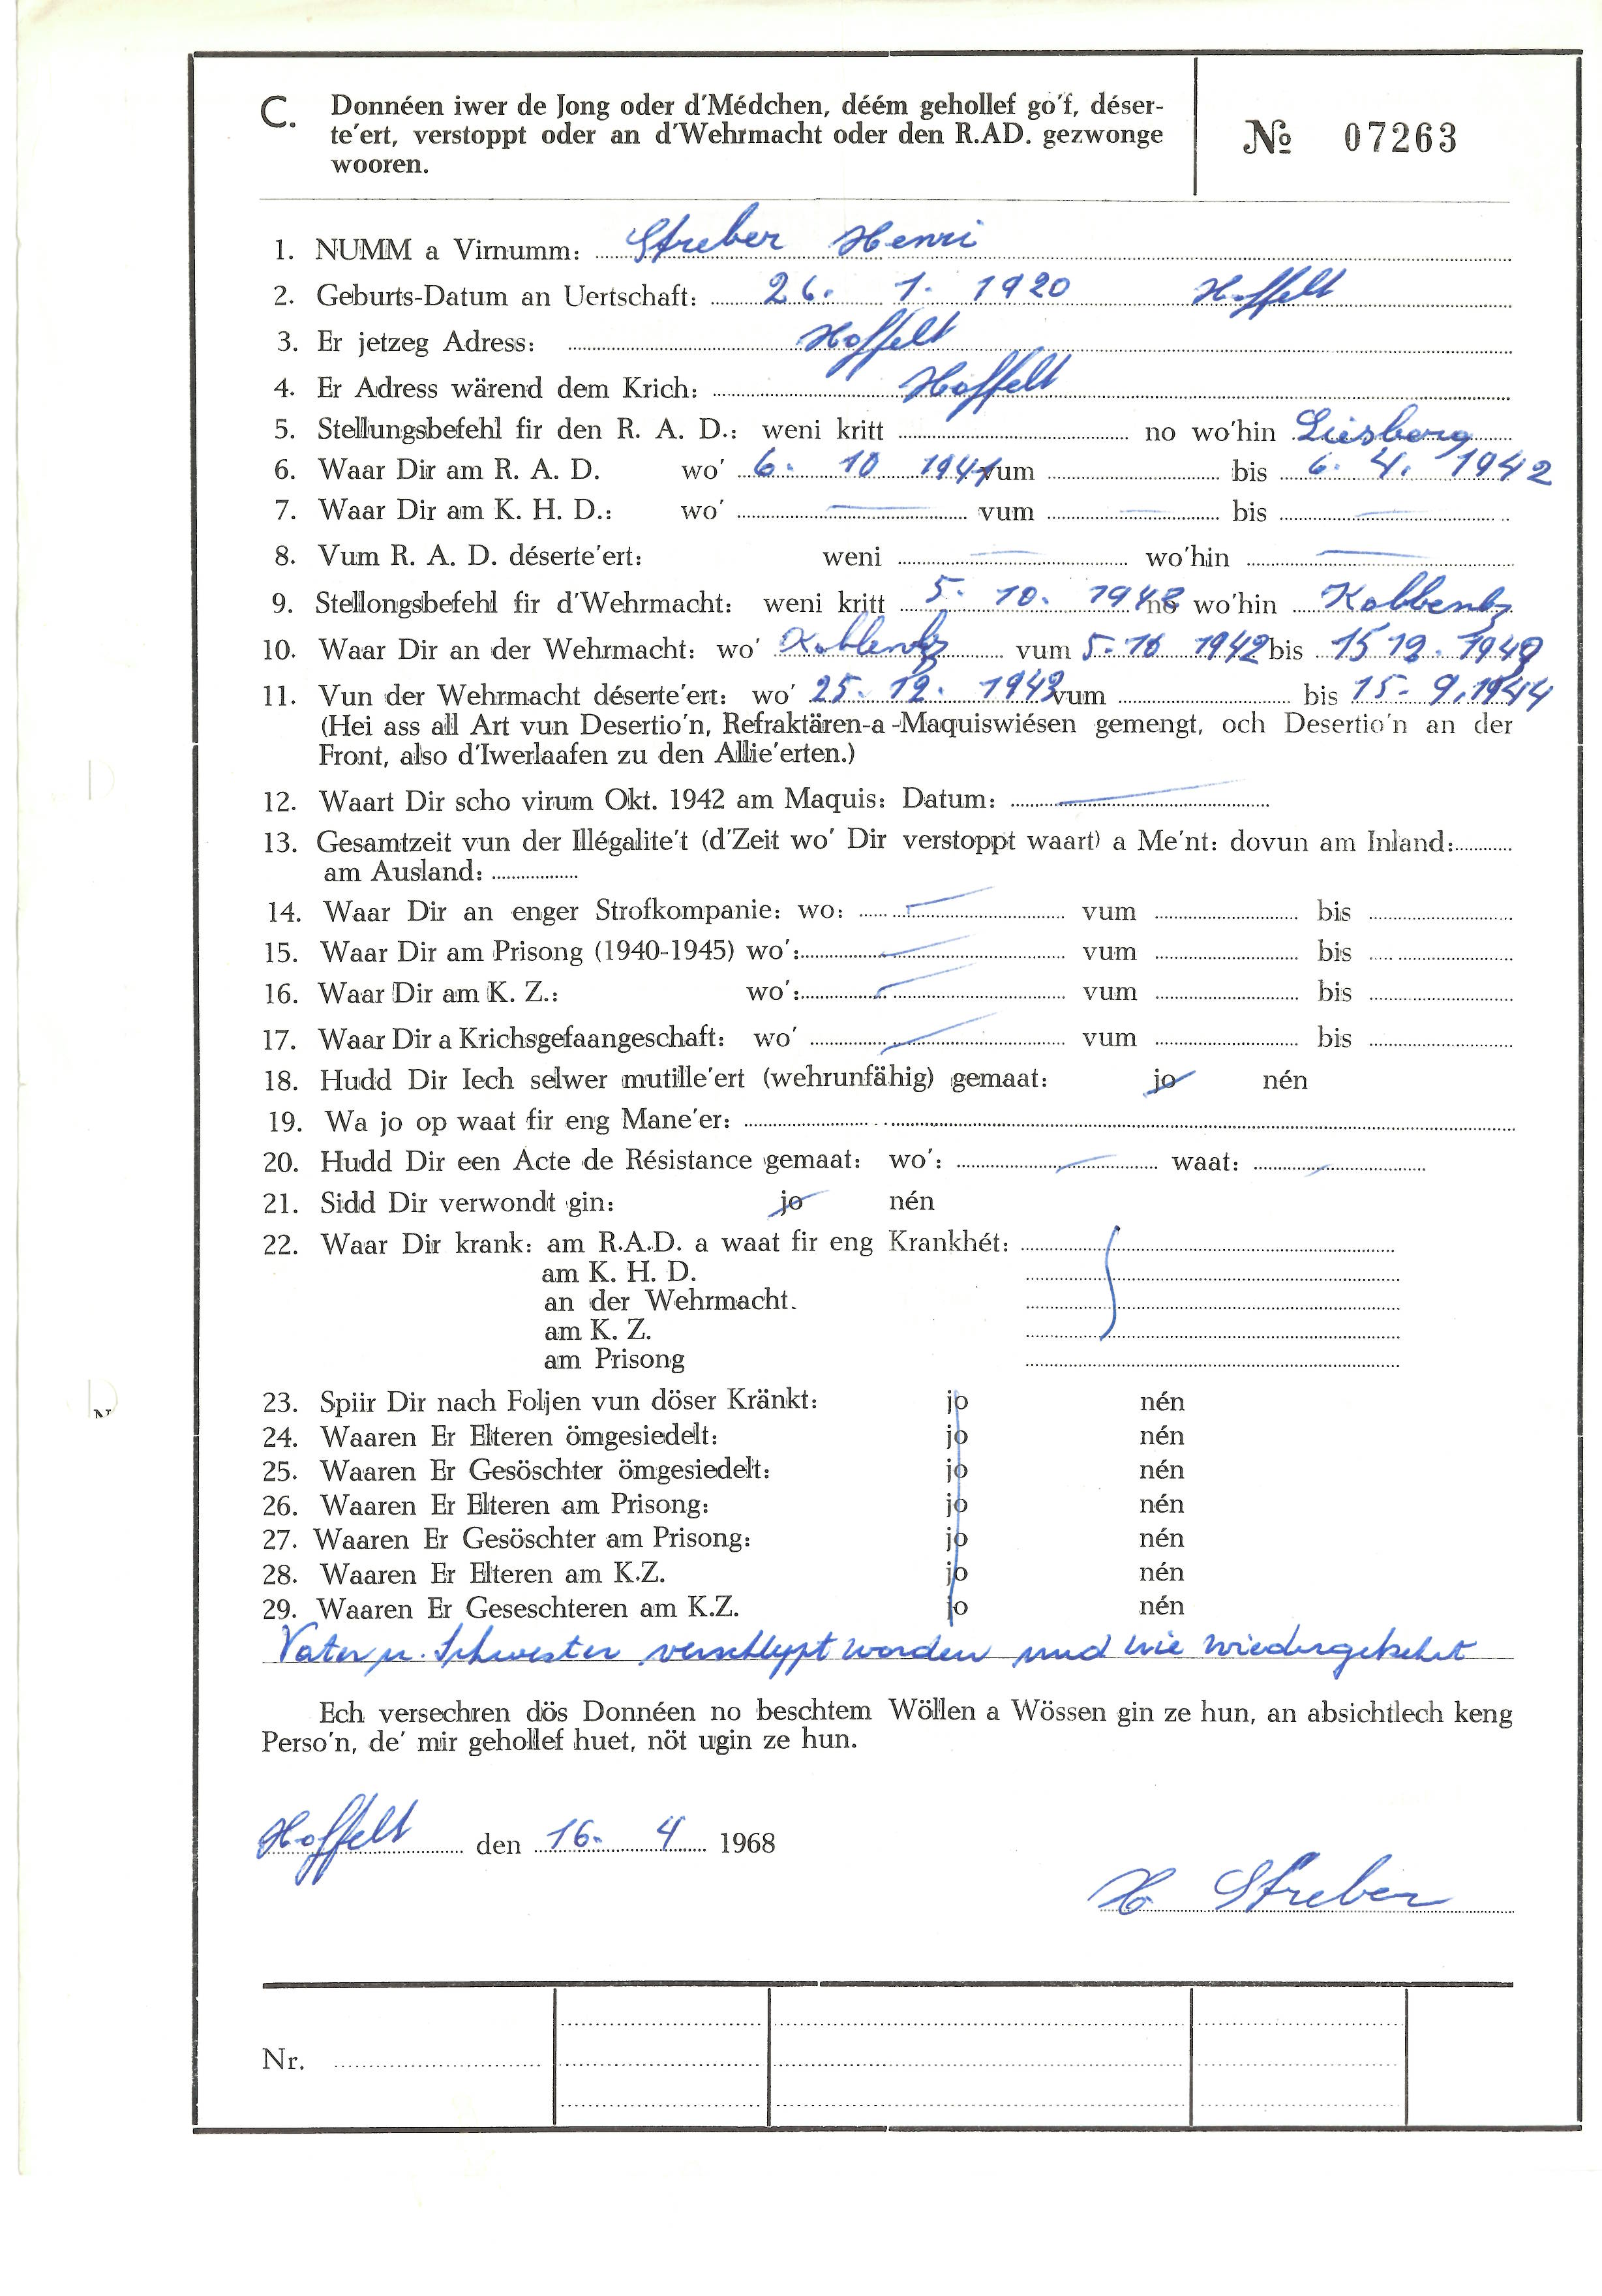 C. Donnéen iwer de Jong oder d'Médchen, déém gehollef go'f, déser-
te'ert, verstoppt oder an d'Wehrmacht oder den R.AD. gezwonge
wooren.
№ 07263
1. NUMM a Virnumm: Streber Henri
2. Geburts-Datum an Uertschaft: 26. 1. 1920 Hoffelt
3. Er jetzeg Adress: Hoffelt
4. Er Adress wärend dem Krich: Hoffelt
5. Stellungsbefehl fir den R. A. D.: weni kritt no wo'hin
6. Waar Dir am R. A. D. wo' 6. 10 1941 vum bis 6. 4. 1942
7. Waar Dir am K. H. D.: wo' — vum — bis —
8. Vum R. A. D. déserte'ert: weni — wo'hin —
9. Stellongsbefehl fir d'Wehrmacht: weni kritt 5. 10. 1942 no wo'hin Kobbentz
10. Waar Dir an der Wehrmacht: wo' Koblentz vum 5. 10 1942 bis 15 12. 1942
11. Vun der Wehrmacht déserte'ert: wo' 25. 12. 1943 vum bis 15. 9. 1944
(Hei ass all Art vun Desertio'n, Refraktären-a -Maquiswiésen gemengt, och Desertio'n an der
Front, also d'Iwerlaafen zu den Allie'erten.)
12. Waart Dir scho virum Okt. 1942 am Maquis: Datum: —
13. Gesamtzeit vun der Illégalite't (d'Zeit wo' Dir verstoppt waart) a Me'nt: dovun am Inland:
am Ausland:
14. Waar Dir an enger Strofkompanie: wo: — vum bis
15. Waar Dir am Prisong (1940-1945) wo': — vum bis
16. Waar Dir am K. Z.: wo': — vum bis
17. Waar Dir a Krichsgefaangeschaft: wo' — vum bis
18. Hudd Dir Iech selwer mutille'ert (wehrunfähig) gemaat: jo nén
19. Wa jo op waat fir eng Mane'er:
20. Hudd Dir een Acte de Résistance gemaat: wo': — waat: —
21. Sidd Dir verwondt gin: jo nén
22. Waar Dir krank: am R.A.D. a waat fir eng Krankhét:
am K. H. D.
an der Wehrmacht.
am K. Z.
am Prisong
23. Spiir Dir nach Foljen vun döser Kränkt: jo nén
24. Waaren Er Elteren ömgesiedelt: jo nén
25. Waaren Er Gesöschter ömgesiedelt: jo nén
26. Waaren Er Elteren am Prisong: jo nén
27. Waaren Er Gesöschter am Prisong: jo nén
28. Waaren Er Elteren am K.Z. jo nén
29. Waaren Er Geseschteren am K.Z. jo nén
Vater u. Schwester verschlyppt worden und nie wiedergekehrt
Ech versechren dös Donnéen no beschtem Wöllen a Wössen gin ze hun, an absichtlech keng
Perso'n, de' mir gehollef huet, nöt ugin ze hun.
Hoffelt den 16. 4 1968
H Streber
Nr.